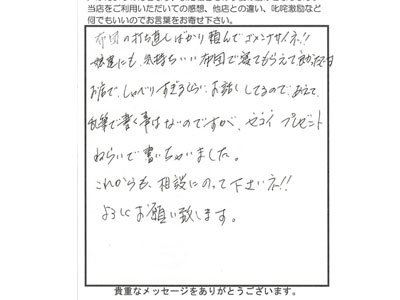 当店をご利用いただいての感想、他店との違い、叱咤激励など
何でもいいのでお言葉をお寄せ下さい。
布団の打ち直しばかり頼んでゴメンナサイネ!!
娘達にも、気持ちいい布団で寝てもらえて良かったです
お店で、しゃべりすぎるくらいお話ししてるので、あえて、
乱筆で書く事はないのですが、セコイ プレゼント
ねらいで書いちゃいました。
これからも、相談にのって下さいネ!!
よろしくお願い致します。
貴重なメッセージをありがとうございます。